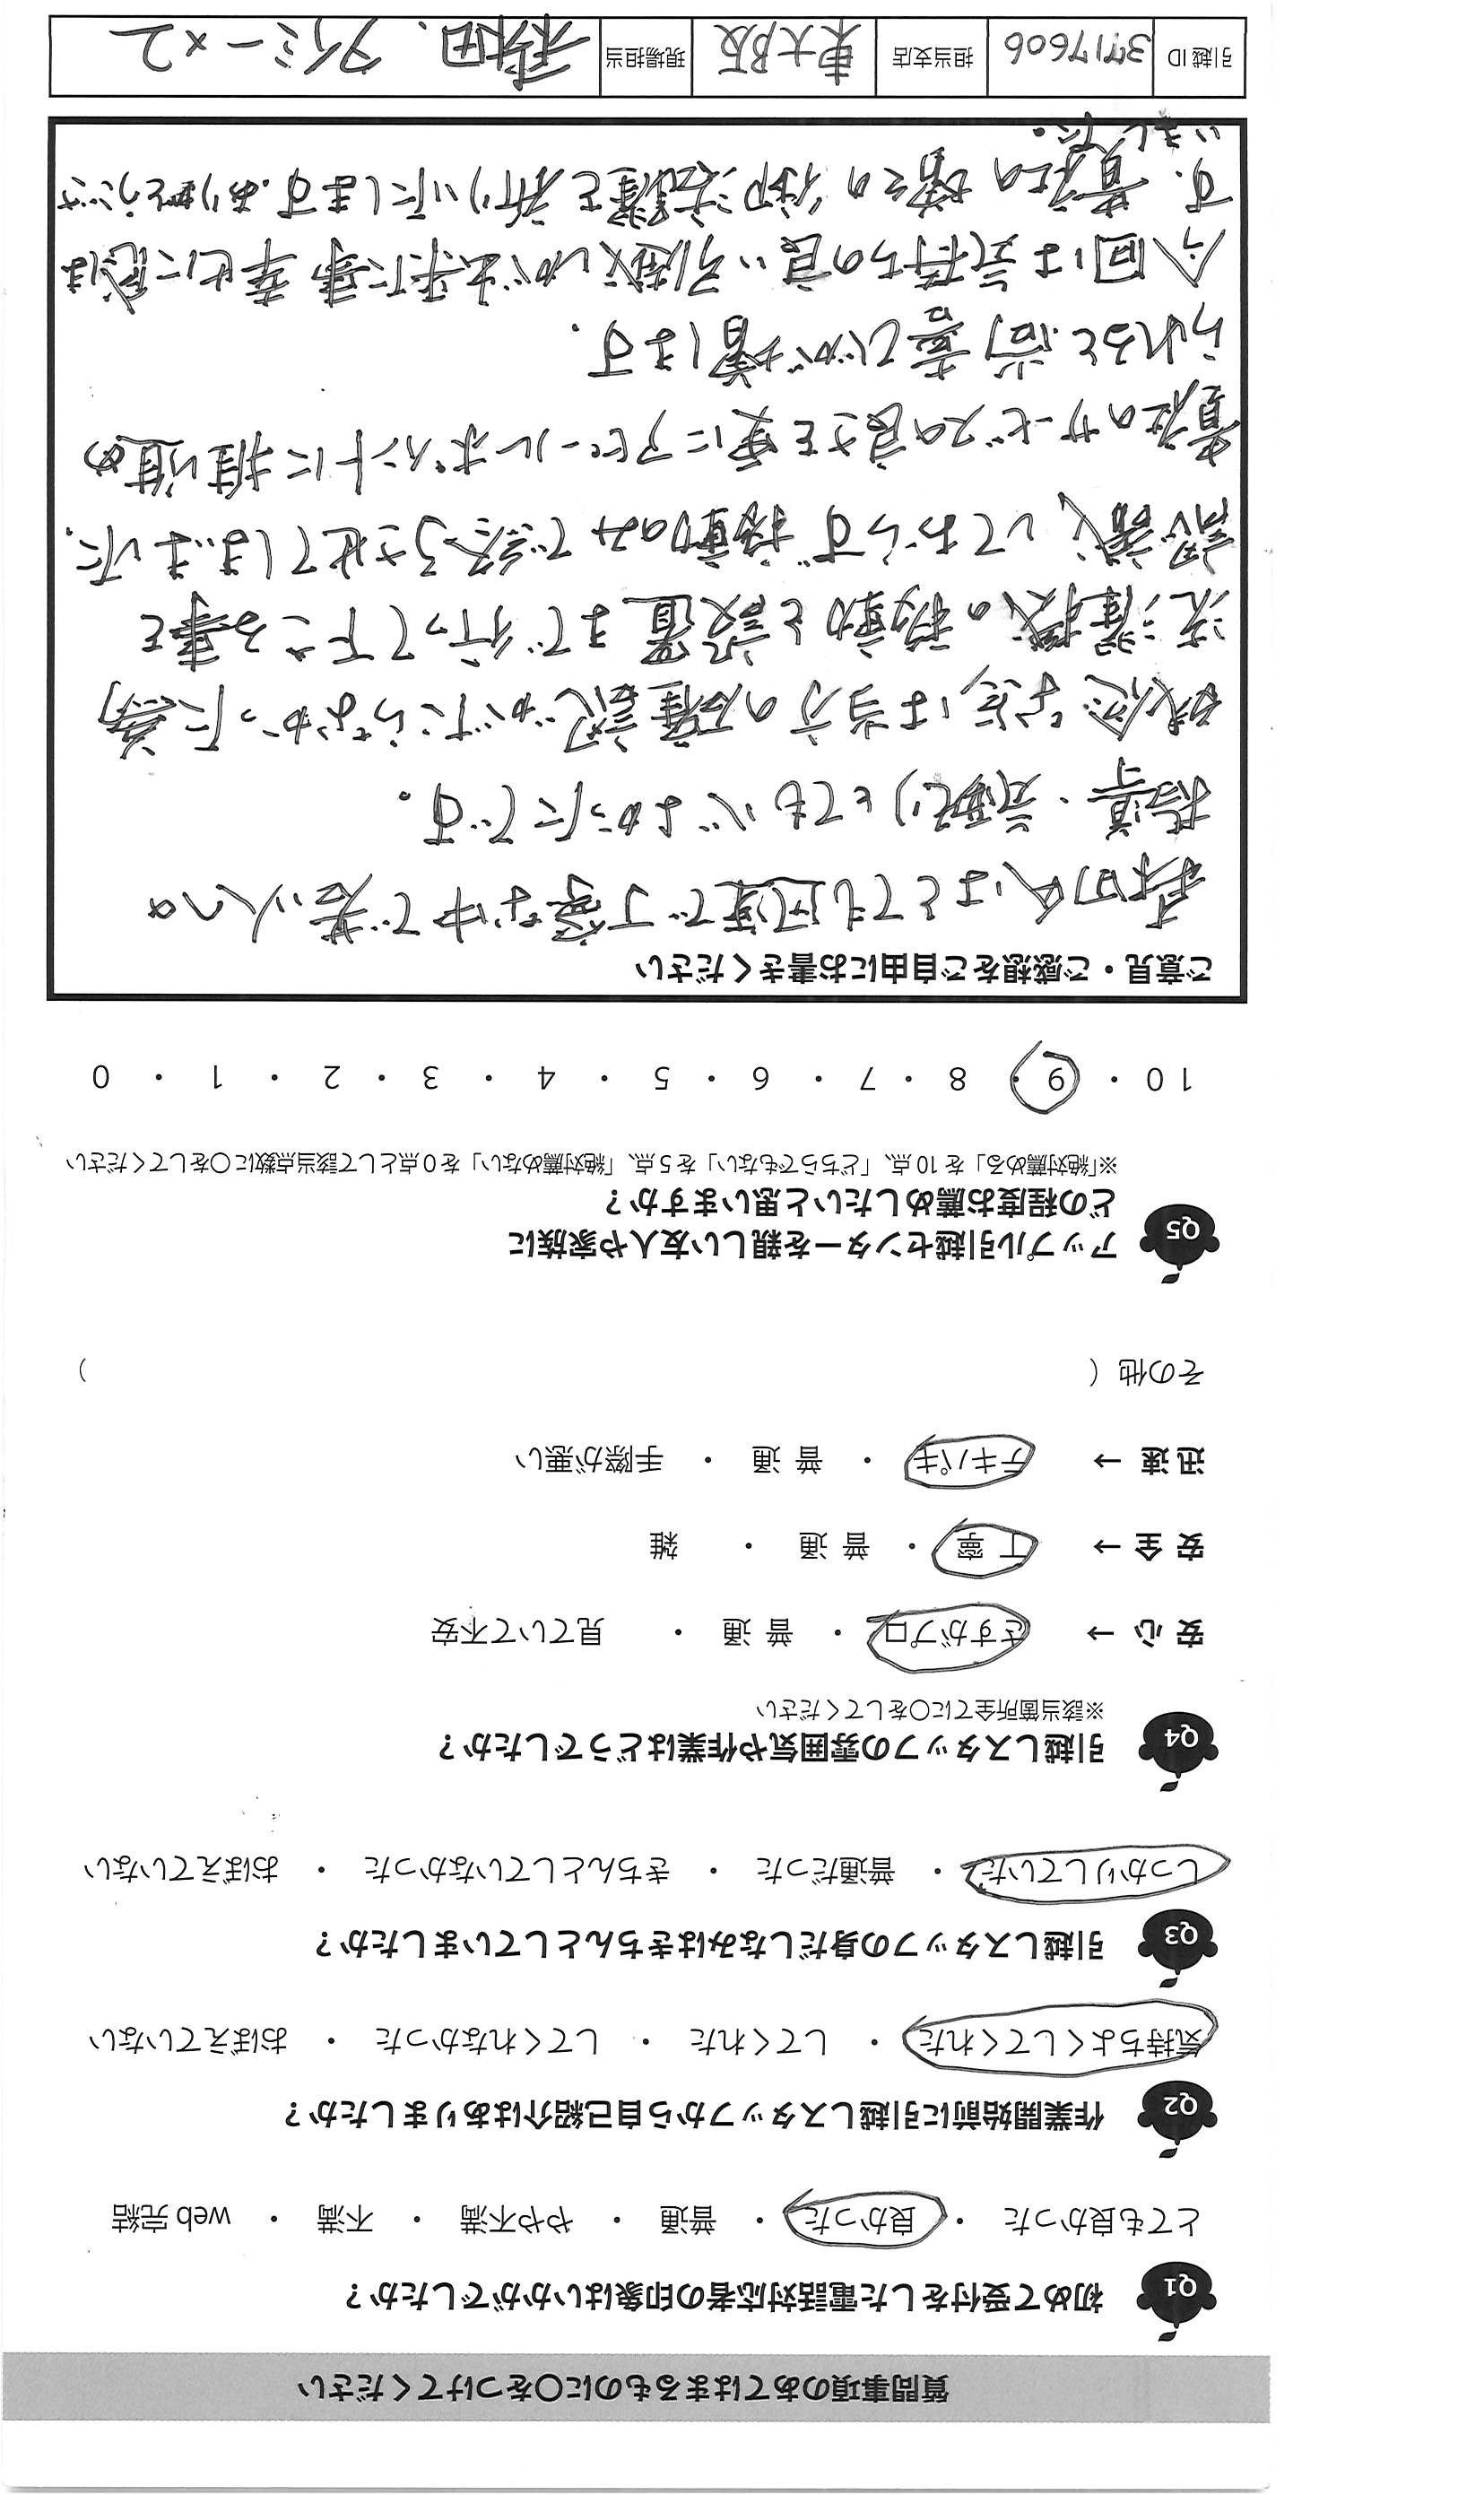 質問事項のあてはまるものに〇をつけてください
Q1 初めて受付をした電話対応者の印象はいかがでしたか？
とても良かった ・ 良かった ・ 普通 ・ やや不満 ・ 不満 ・ web 完結
Q2 作業開始前に引越しスタッフから自己紹介はありましたか？
気持ちよくしてくれた ・ してくれた ・ してくれなかった ・ おぼえていない
Q3 引越しスタッフの身だしなみはきちんとしていましたか？
しっかりしていた ・ 普通だった ・ きちんとしていなかった ・ おぼえていない
Q4 引越しスタッフの雰囲気や作業はどうでしたか？
※該当箇所全てに〇をしてください
安 心 → さすがプロ ・ 普 通 ・ 見ていて不安
安 全 → 丁 寧 ・ 普 通 ・ 雑
迅 速 → テキパキ ・ 普 通 ・ 手際が悪い
その他（ ）
Q5 アップル引越センターを親しい友人や家族に
どの程度お薦めしたいと思いますか？
※「絶対薦める」を 10 点、「どちらでもない」を 5 点、「絶対薦めない」を 0 点として該当点数に〇をしてください
10 ・ 9 ・ 8 ・ 7 ・ 6 ・ 5 ・ 4 ・ 3 ・ 2 ・ 1 ・ 0
ご意見・ご感想をご自由にお書きください
はとても迅速で丁寧な中で若い人への
指導、気配りとても心よかったです。
残念な点は当方の確認がたらなかった為
洗濯機の移動と設置まで行って下さる事を
認識しておらず移動のみで終ろさせてしまいました.
貴社のサービスの良さを更にアピールポイントに推し進め
られると尚喜びが増します.
今回は気持ちの良い引越しが出来た事幸せに感じま
す. 貴社の皆々の御活躍を祈りいたします.ありがとうござ
いました.
引越 ID 3717606 担当支店 東大阪 現場担当 タイミー×2